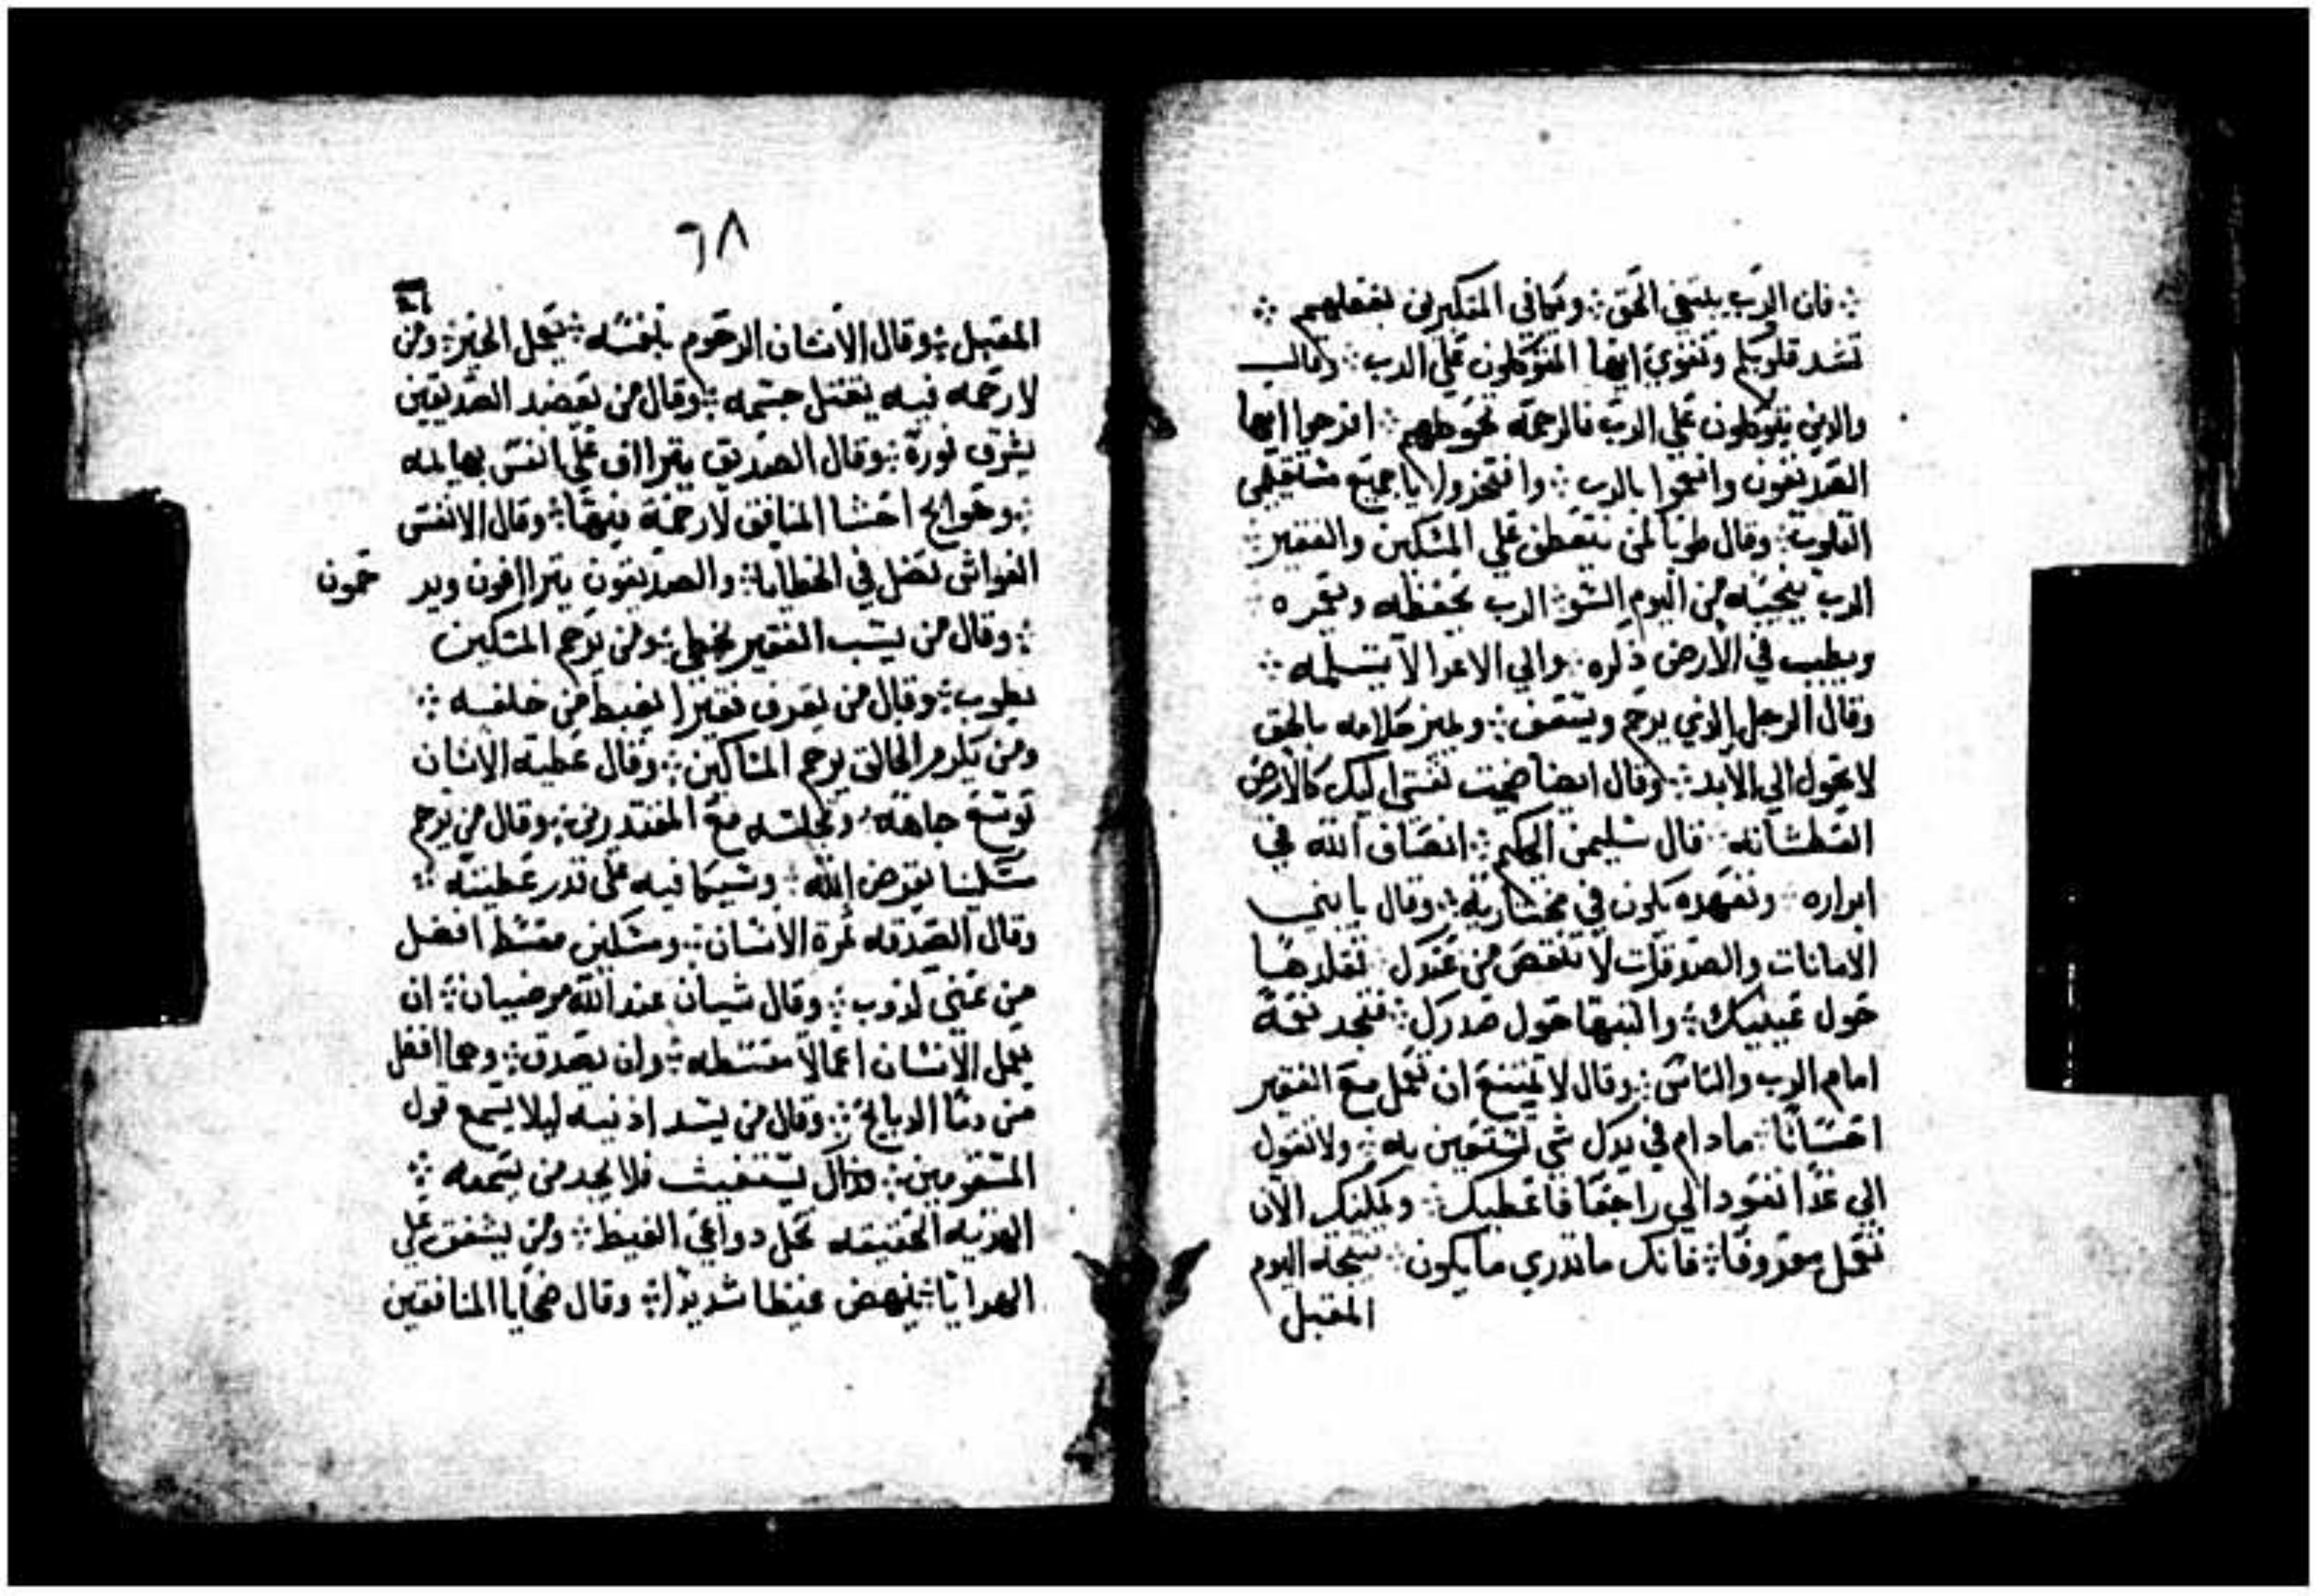 فان الرب يبتغي الحق ؞ ويكافي المتكبرين بفعلهم ؞
تشد قلوبكم وتقوي ايها المتوكلون علي الرب ؞ وقال
والدين يتوكلون علي الرب فالرحمه تحوطهم ؞ افرحوا ايها
الصديقون وانعموا بالرب ؞ وافتخروا يا جميع مستقيمي
القلوب ؞ وقال طوبا لمن يتعطف علي المسكين والفقير ؞
الرب ينجيه من اليوم السو ؞ الرب يحفظه ويعمره
ويطيب في الارض ذكره ؞ والي الاعدا لا يسلمه ؞
وقال الرجل الذي يرحم ويسعف ؞ ويميز كلامه بالحق
لا يحول الي الابد ؞ وقال ايضا نفسي اليك كالارض
العطشانه ؞ قال سليمن الحكيم ؞ انصاف الله في
ابراره ؞ وتعهده يكون في مختاريه ؞ وقال يا بني
الامانات والصدقات لا تنقص من عندك ؞ تقلدها
حول عينيك ؞ واكتبها حول صدرك ؞ فتجد نعمة
امام الرب والناس ؞ وقال لا تمتنع ان تعمل مع الفقير
احسانا ؞ مادام في يدك شي تستعين به ؞ ولا تقول
الي غدا تعود الي راجعا فاعطيك ؞ ويمكنك الان
تعمل معروفا ؞ فانك ما تدري ما يكون ؞ نتيجة اليوم
المقبل
٦٨
المقبل ؞ وقال الانسان الرحوم بنفسه ؞ يعمل الخير ؞ ومن
لا رحمه فيه يقتل جسمه ؞ وقال من يعضد الصديقين
يشرق نوره ؞ وقال الصديق يتراااف علي انفس بهايمه
؞ وحوايج احشا المنافق لا رحمة فيها ؞ وقال الانفس
الغواشي تضل في الخطايا ؞ والصديقون يتراافون وير حمون
؞ وقال من يسب الفقير يخطي ؞ ومن يرحم المسكين
يطوب ؞ وقال من يقرف فقيرا يغيظ من خلقه ؞
ومن يكرم الخالق يرحم المساكين ؞ وقال عطيه الانسان
توسع جاهه ؞ وتجلسه مع المقتدرين ؞ وقال من يرحم
مسكينا يقرض الله ؞ وسيكافيه علي قدر عطيته ؞
وقال الصدقه ثمرة الانسان ؞ ومسكين مقسط افضل
من غني كذوب ؞ وقال شيان عند الله مرضيان ؞ ان
يعمل الانسان اعمالا مقسطه ؞ وان يصدق ؞ وهما افضل
من دما الدبايح ؞ وقال من يسد اذنيه ليلا يسمع قول
المسقومين ؞ وذاك يستغيث فلا يجد من يسمعه ؞
الهديه الخفيفه تحل دواعي الغيظ ؞ ومن يشفق علي
الهدايا ؞ ينهض غيظا شديدا ؞ وقال ضحايا المنافقين